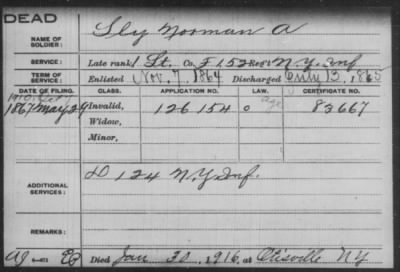 DEAD
NAME OF SOLDIER: Sly Norman A
SERVICE: Late rank 1 Lt. Co. F 152 Reg't N.Y. Inf
TERM OF SERVICE: Enlisted Nov. 7, 1864 Discharged July 13, 1865
DATE OF FILING. CLASS. APPLICATION NO. LAW. CERTIFICATE NO.
1867 May 29 Invalid, 126 154 0 age 83667
Widow,
Minor,
ADDITIONAL SERVICES: D 124 N.Y Inf.
REMARKS:
Died Jan 30, 1916, at Otisville NY